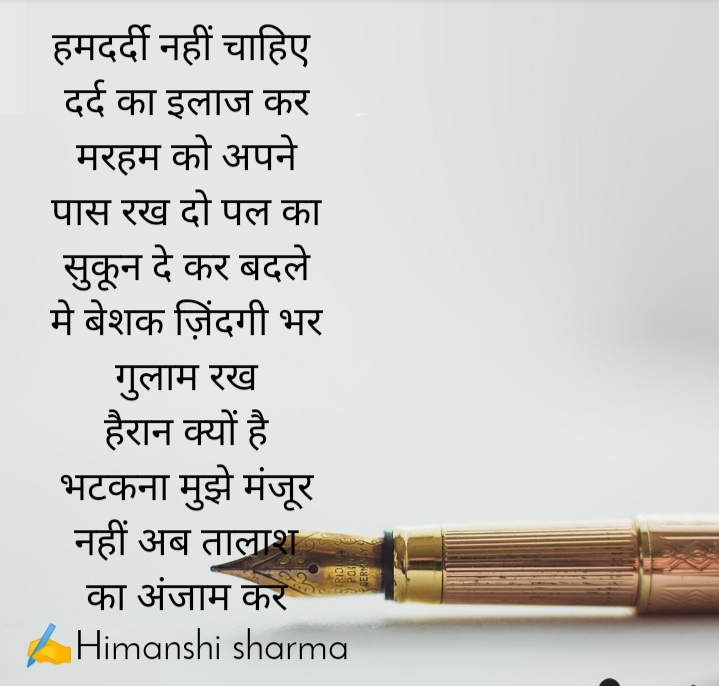 हमदर्दी नहीं चाहिए
दर्द का इलाज कर
मरहम को अपने
पास रख दो पल का
सुकून दे कर बदले
मे बेशक ज़िंदगी भर
गुलाम रख
हैरान क्यों है
भटकना मुझे मंजूर
नहीं अब तालाश
का अंजाम कर
✍️Himanshi sharma